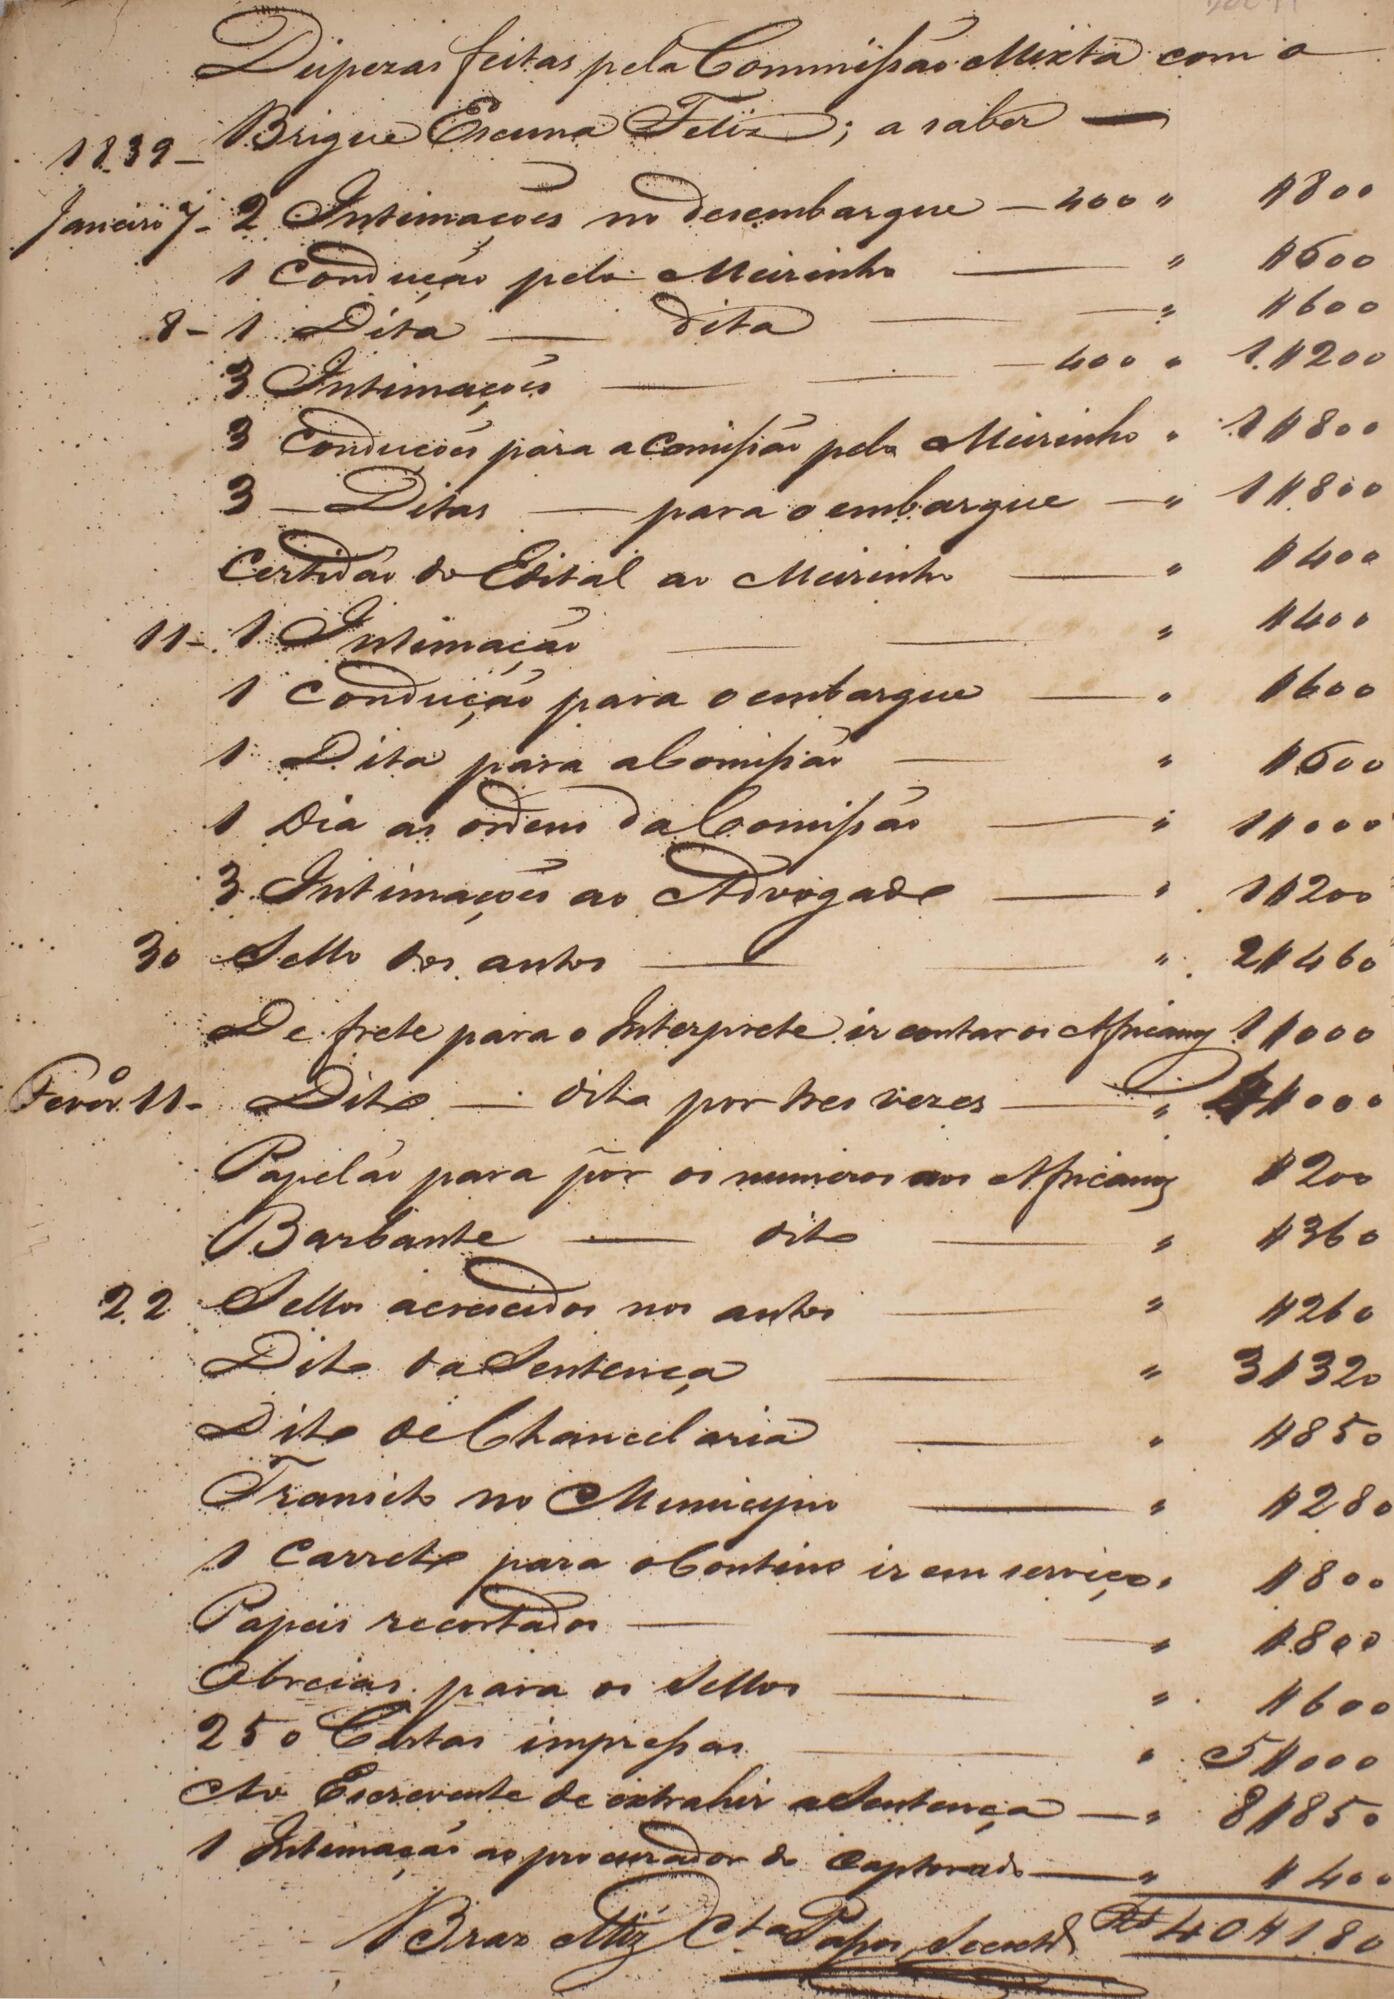 Despezas feitas pela Commissão Mixta com o
Brigue Escuna Feliz; a saber —
1839 –
Janeiro 7 – 2 Intimações no desembarque — 400 " $800
1 Condução pelo Meirinho — " $600
8 – 1 Dita — dita — " $600
3 Intimações — 400 " 1$200
3 Conduções para a Comissão pelo Meirinho " 1$800
3 — Ditas — para o embarque — " 1$800
Certidão do Edital ao Meirinho — " $400
11 – 1 Intimação — " $400
1 Condução para o embarque — " $600
1 Dita para a Comissão — " $600
1 Dia as ordens da Comissão — " 1$000
3 Intimações ao Advogado — " 1$200
30 Sello dos autos — " 2$460
De frete para o Interprete ir contar os Africanos 1$000
Fevero. 11 – Dito — dito por tres vezes — " $000
Papelão para pôr os numeros aos Africanos $200
Barbante — dito — " $360
22 Sellos acrescidos nos autos — " $260
Dito da Sentença — " 3$320
Dito de Chancelaria — " $850
Transito no Municipio — " $280
1 Carreto para o Contino ir em serviço " $800
Papeis recortados — " $800
Obreias para os Sellos — " $600
250 Cartas impressas — " 5$000
Ao Escrevente de extrahir a Sentença — " 8$850
1 Intimação ao procurador do Captorado — " $400
Braz Miz Cta Passos, Secretº Rs 40$180